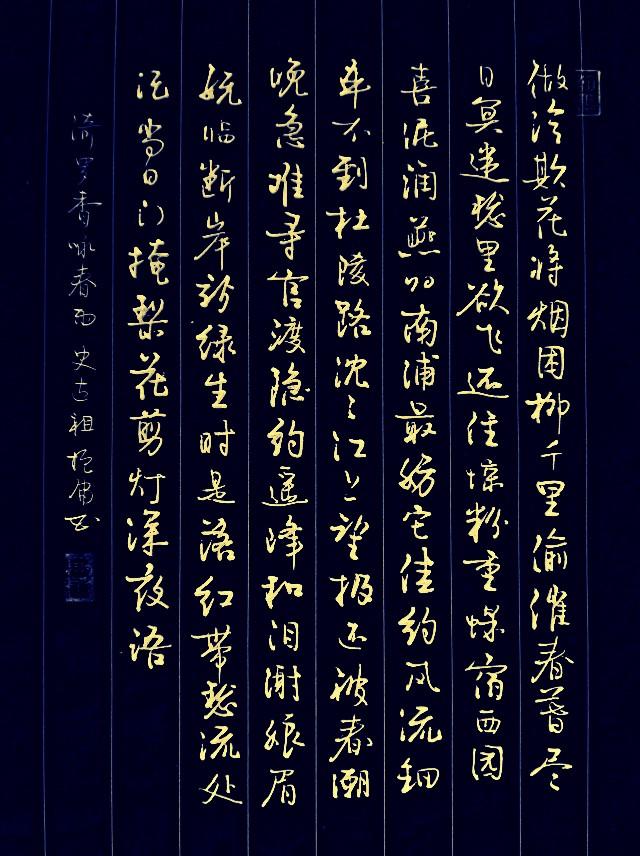 做冷欺花将烟困柳千里偷催春暮尽
日冥迷愁里欲飞还住惊粉重蝶宿西园
喜泥润燕归南浦最妨它佳约风流钿
车不到杜陵路沈〻江上望极还被春潮
晚急难寻官渡隐约遥峰和泪谢娘眉
妩临断岸新绿生时是落红带愁流处
记当日门掩梨花剪灯深夜语
绮罗香咏春雨史达祖书